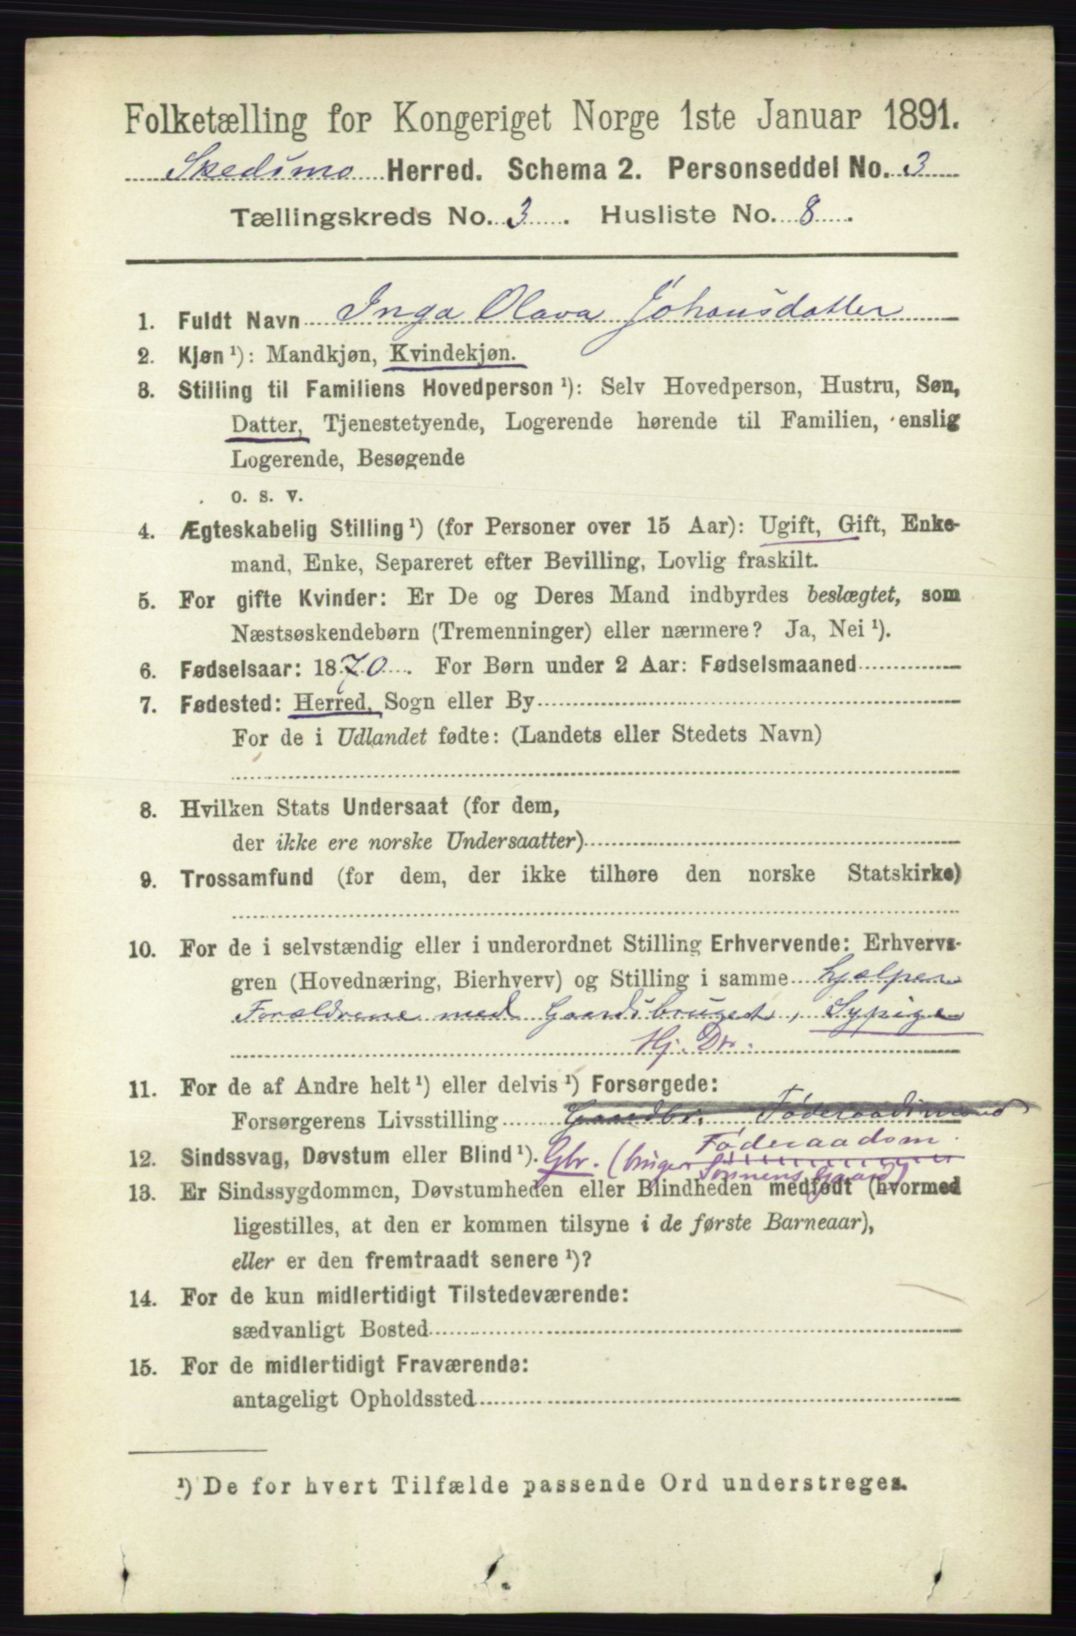 Folketælling for Kongeriget Norge 1ste Januar 1891.
Skedsmo Herred. Schema 2. Personseddel No. 3
Tællingskreds No. 3. Husliste No. 8.
1. Fuldt Navn Inga Olava Johansdatter
2. Kjøn ¹): Mandkjøn, Kvindekjøn.
3. Stilling til Familiens Hovedperson ¹): Selv Hovedperson, Hustru, Søn,
Datter, Tjenestetyende, Logerende hørende til Familien, enslig
Logerende, Besøgende
o. s. v.
4. Ægteskabelig Stilling ¹) (for Personer over 15 Aar): Ugift, Gift, Enke-
mand, Enke, Separeret efter Bevilling, Lovlig fraskilt.
5. For gifte Kvinder: Er De og Deres Mand indbyrdes beslægtet, som
Næstsøskendebørn (Tremenninger) eller nærmere? Ja, Nei ¹).
6. Fødselsaar: 1870. For Børn under 2 Aar: Fødselsmaaned
7. Fødested: Herred, Sogn eller By
For de i Udlandet fødte: (Landets eller Stedets Navn)
8. Hvilken Stats Undersaat (for dem,
der ikke ere norske Undersaatter)
9. Trossamfund (for dem, der ikke tilhøre den norske Statskirke)
10. For de i selvstændig eller i underordnet Stilling Erhvervende: Erhvervs-
gren (Hovednæring, Bierhverv) og Stilling i samme hjælper
Forældrene med Gaardsbruget, Sypige
Hj. Dtr.
11. For de af Andre helt ¹) eller delvis ¹) Forsørgede:
Forsørgerens Livsstilling Gaardbr. Føderaadsmand
Føderaadsm.
12. Sindssvag, Døvstum eller Blind ¹). Gbr. (bruger Sønnens Gaard)
13. Er Sindssygdommen, Døvstumheden eller Blindheden medfødt (hvormed
ligestilles, at den er kommen tilsyne i de første Barneaar),
eller er den fremtraadt senere ¹)?
14. For de kun midlertidigt Tilstedeværende:
sædvanligt Bosted
15. For de midlertidigt Fraværende:
antageligt Opholdssted
¹) De for hvert Tilfælde passende Ord understreges.